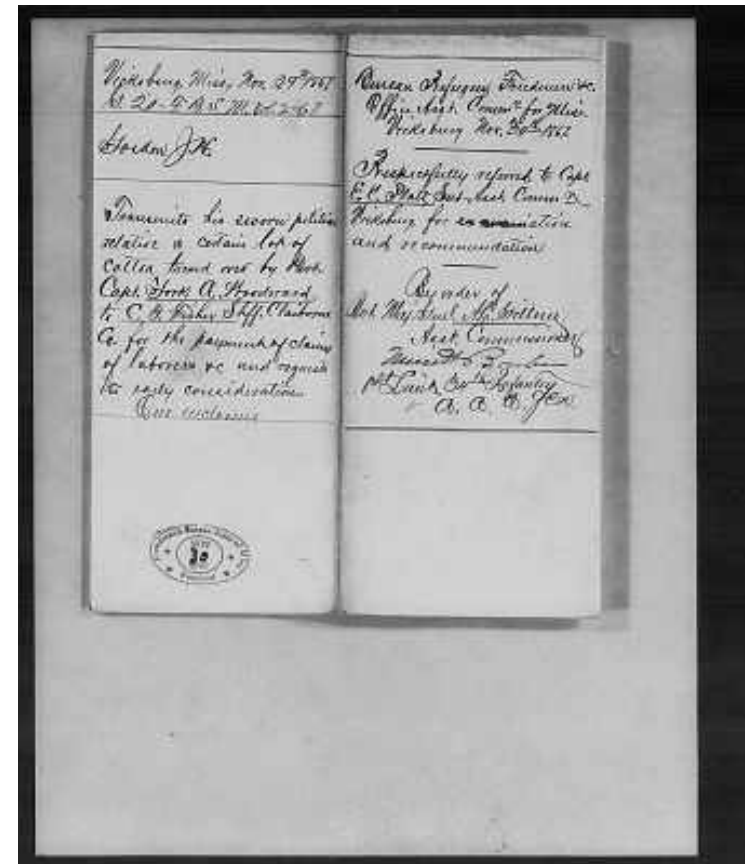 Vicksburg Miss, Nov. 29th 1867
Gordon J.H.
Transmits his sworn petition
relative a certain lot of
cotton turned over by
Capt. A. Woodward
to C. B. Fisher Shff. Claiborne
Co for the payment of claims
of laborers &c and requests
early consideration
One inclosure
30
Bureau Refugees Freedmen &c.
Office Asst. Commr for Miss.
Vicksburg Nov. 30th 1867
Respectfully referred to Capt
E. E. Platt Sub Asst. Commr
Vicksburg for
and recommendation
By order of
Bvt Maj Genl A. C. Gillem
Asst. Commissioner
1st Lieut Infantry
A. A. A. Gen